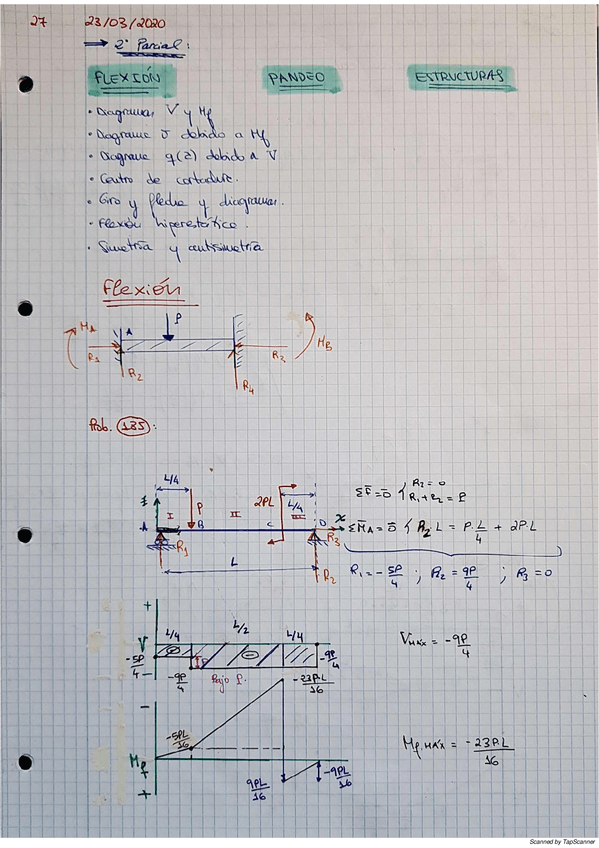 27 23/03/2020
→ 2º Parcial:
FLEXIÓN PANDEO ESTRUCTURAS
• Diagramas V y Mf
• Diagrama σ debido a Mf
• Diagrama q(z) debido a V
• Centro de cortadura.
• Giro y flecha y diagramas.
• Flexión hiperestática.
• Simetría y antisimetría
Flexión
MA A P MB
R1 R3
R2 R4
Prob. 135:
L/4 2PL L/4
P
I II III
A B C D x
R1 R3
R2
L
ΣF̄ = 0̄ { R3 = 0
R1 + R2 = P
ΣM̄A = 0̄ { R2 L = P·L/4 + 2PL
R1 = -5P/4 ; R2 = 9P/4 ; R3 = 0
+
V L/4 L/2 L/4
-5P/4 -9P/4
-
-9P/4 Bajo P.
Vmáx = -9P/4
-
-5PL/16 -23PL/16
Mf
+
9PL/16 -9PL/16
Mf,máx = -23PL/16
Scanned by TapScanner